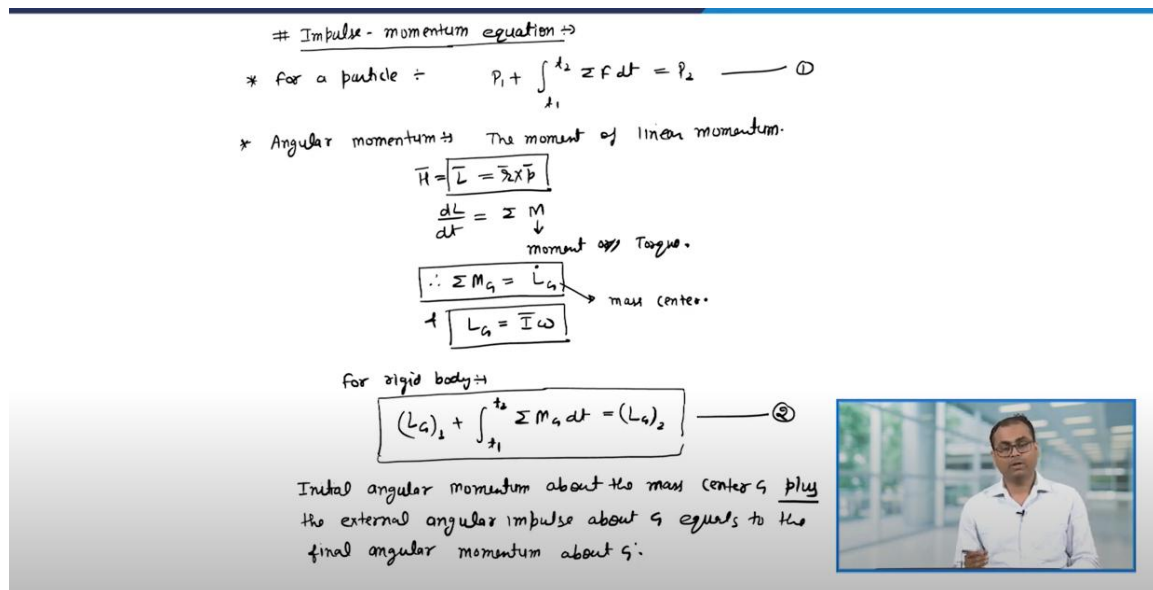 # Impulse - momentum equation ÷>
* for a particle ÷ P₁ + ∫_{t₁}^{t₂} Σ F dt = P₂ —— ①
* Angular momentum ÷> The moment of linear momentum.
H̄ = L̄ = r̄ × p̄
dL/dt = Σ M
moment or Torque.
∴ Σ M_G = L̇_G
mass center.
& L_G = Ī ω
for rigid body ÷>
(L_G)₁ + ∫_{t₁}^{t₂} Σ M_G dt = (L_G)₂ —— ②
Initial angular momentum about the mass center G plus
the external angular impulse about G equals to the
final angular momentum about G.